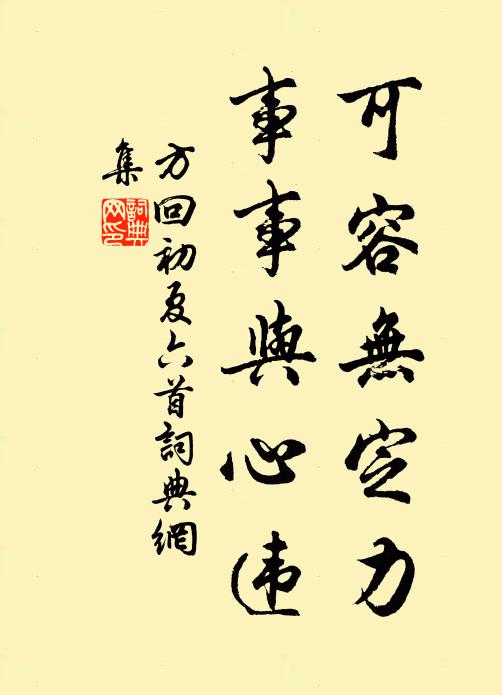 可容無定力
事事與心违
方回初夏六首詞典網
集
詞典網印